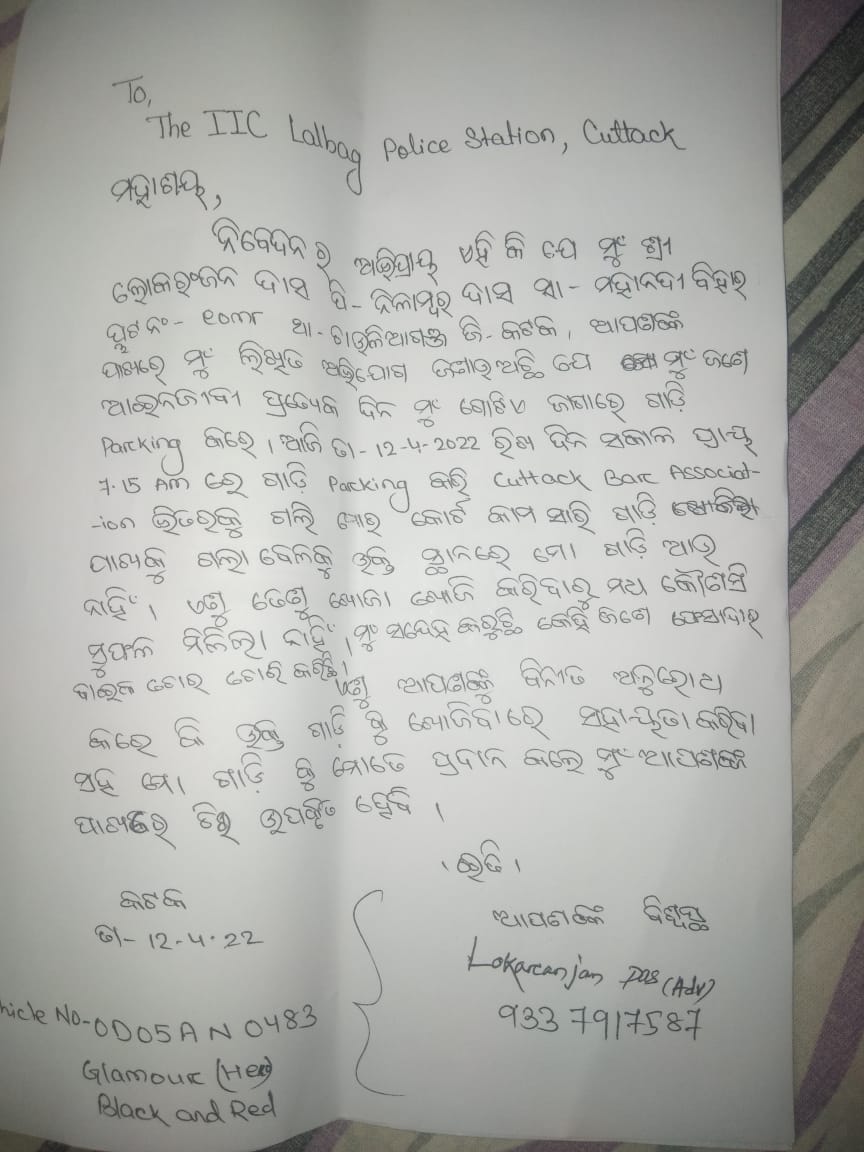 To,
The IIC Lalbag Police Station, Cuttack
ମହାଶୟ,
ନିବେଦନର ଅଭିପ୍ରାୟ ଏହି କି ଯେ ମୁଂ ଶ୍ରୀ
ଲୋକରଂଜନ ଦାସ ପି- ନିଳାମ୍ବର ଦାସ ସା- ମହାନଦୀ ବିହାର
ପ୍ଲଟ ନଂ- ଥା- ଚାଉଳିଆଗଞ୍ଜ ଜି- କଟକ, ଆପଣଙ୍କ
ପାଖରେ ମୁଂ ଲିଖିତ ଅଭିଯୋଗ ଜଣାଉଅଛି ଯେ ମୁଂ ଜଣେ
ଆଇନଜୀବୀ ପ୍ରତ୍ୟେକ ଦିନ ମୁଂ ଗୋଟିଏ ଜାଗାରେ ଗାଡ଼ି
Parcking କରେ । ଆଜି ତା- 12-4-2022 ରିଖ ଦିନ ସକାଳ ପ୍ରାୟ
7.15 AM ରେ ଗାଡ଼ି Parcking କରି Cuttack Barc Associat-
-ion ଭିତରକୁ ଗଲି ମୋର କୋର୍ଟ କାମ ସାରି ଗାଡ଼ି
ପାଖକୁ ଗଲା ବେଳକୁ ଉକ୍ତ ସ୍ଥାନରେ ମୋ ଗାଡ଼ି ଆଉ
ନାହିଁ । ଏଣୁ ତେଣୁ ଖୋଜା ଖୋଜି କରିବାରୁ ମଧ୍ୟ କୌଣସି
ସୁଫଳ ମିଳିଲା ନାହିଁ । ମୁଂ ସନ୍ଦେହ କରୁଛି କେହି ଜଣେ ପେସାଦାର
ବାଇକ ଚୋର ଚୋରି କରିଛି ।
ଏଣୁ ଆପଣଙ୍କୁ ବିନୀତ ଅନୁରୋଧ
କରେ କି ଉକ୍ତ ଗାଡ଼ି କୁ ଖୋଜିବାରେ ସହାୟତା କରିବା
ସହ ମୋ ଗାଡ଼ି କୁ ମୋତେ ପ୍ରଦାନ କଲେ ମୁଂ ଆପଣଙ୍କ
ପାଖରେ ଚିର ଉପକୃତ ହେବି ।
। ଇତି ।
କଟକ
ତା- 12.4.22
ଆପଣଙ୍କ ବିଶ୍ୱସ୍ଥ
Lokarcanjan Das (Adv)
9337917587
hicle No-OD05AN0483
Glamourc (Hero)
Black and Red